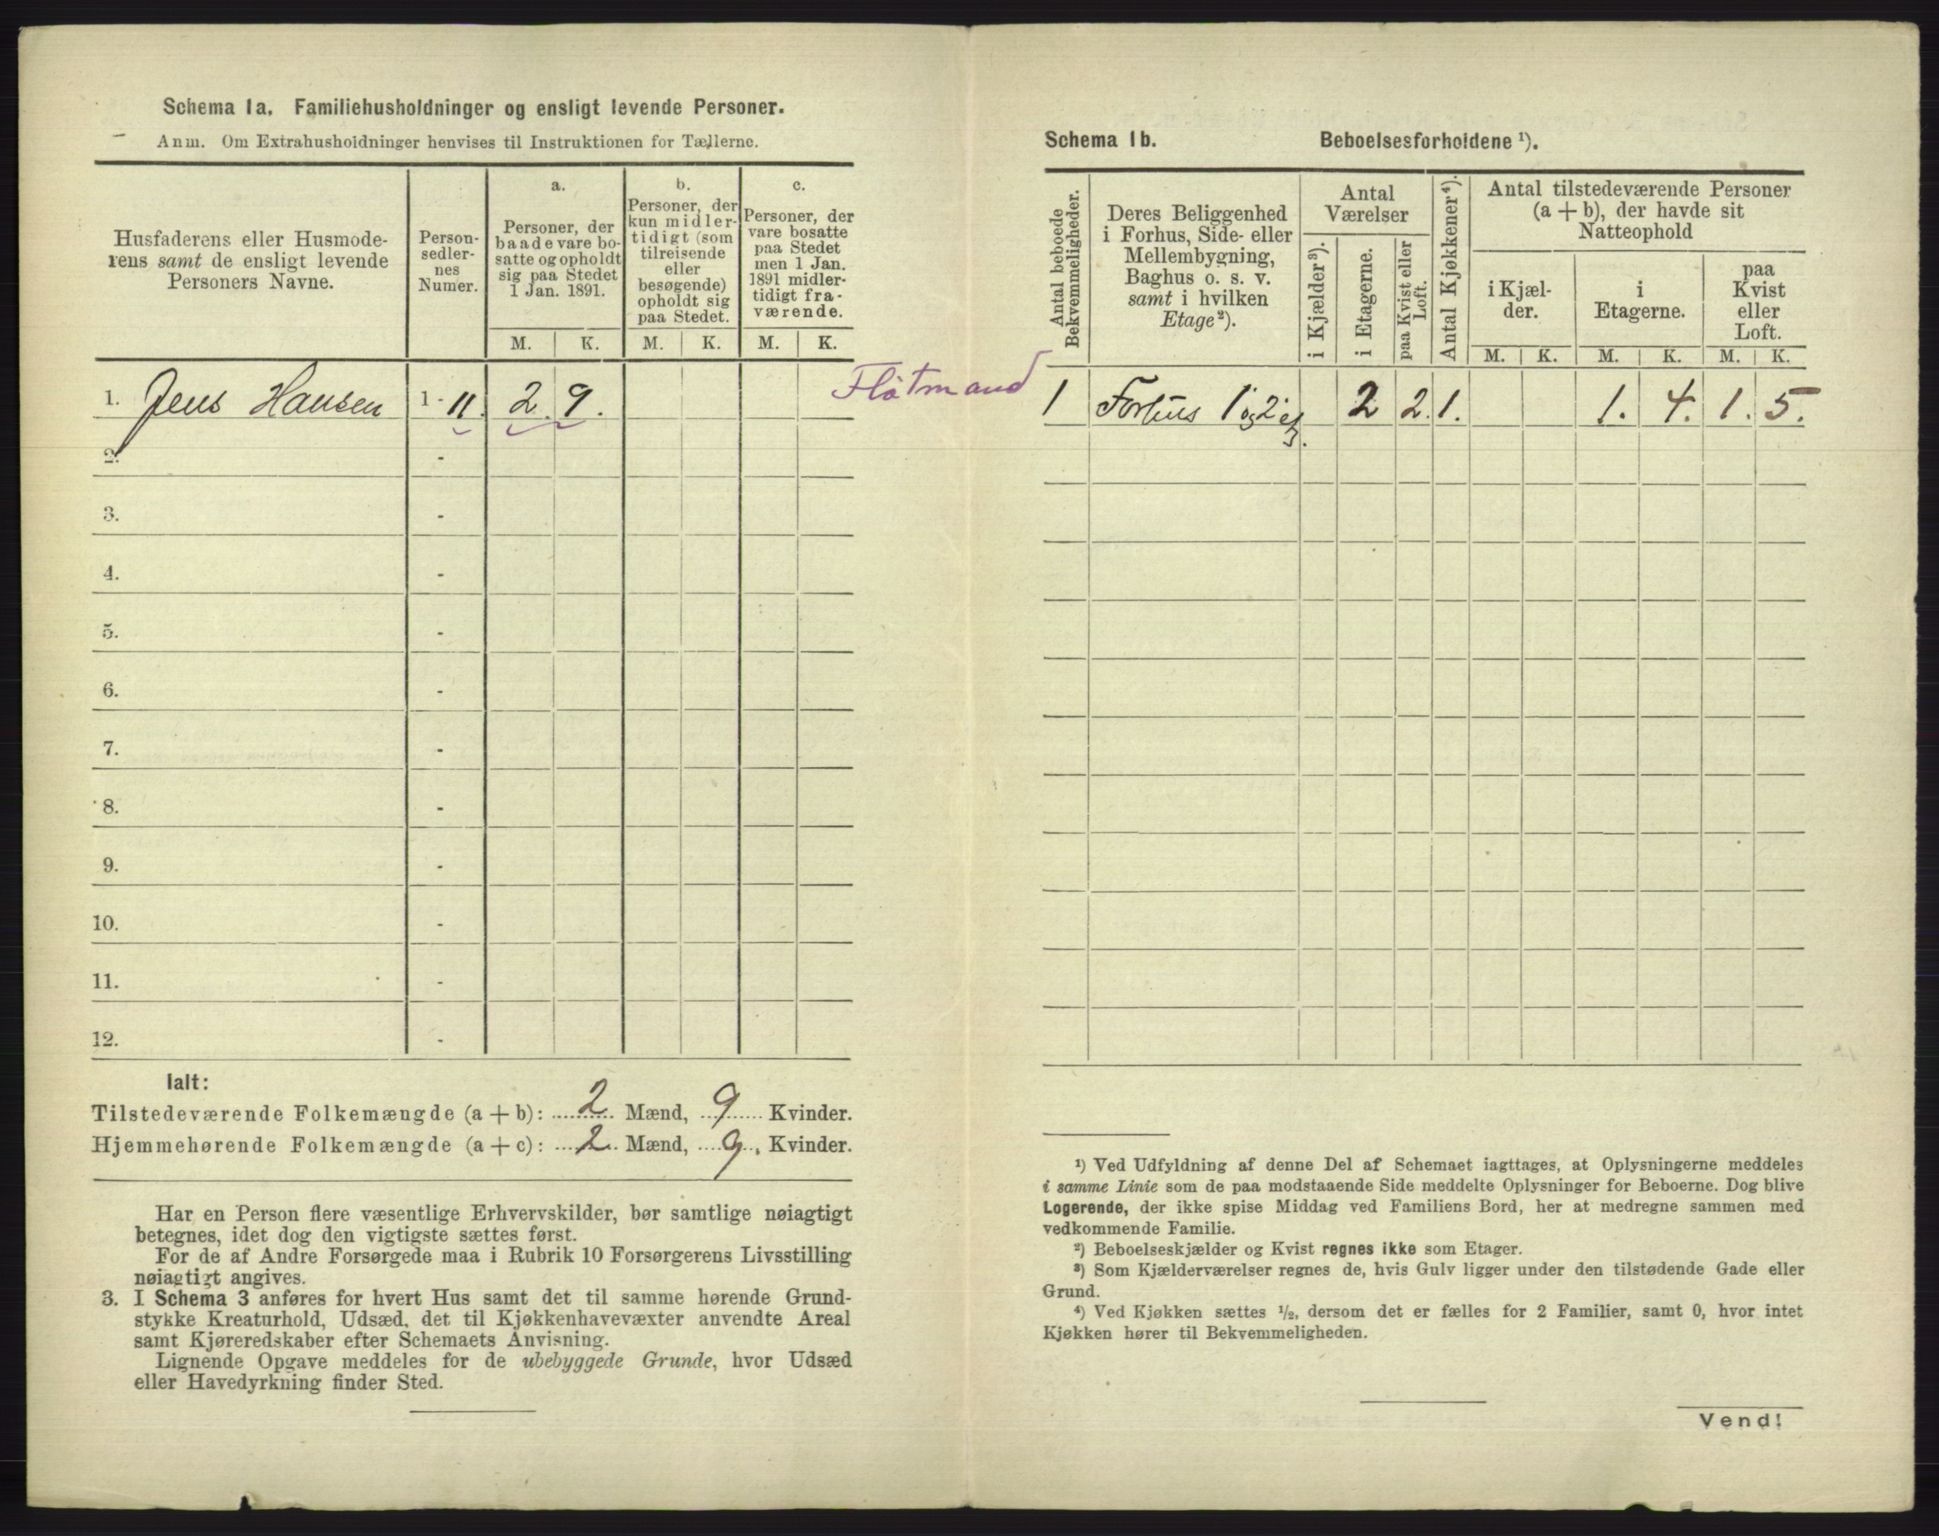 Schema 1a. Familiehusholdninger og ensligt levende Personer.
Anm. Om Extrahusholdninger henvises til Instruktionen for Tællerne.
Husfaderens eller Husmode-
rens samt de ensligt levende
Personers Navne.
Person-
sedler-
nes
Numer.
a.
Personer, der
baade vare bo-
satte og opholdt
sig paa Stedet
1 Jan. 1891.
b.
Personer, der
kun midler-
tidigt (som
tilreisende
eller
besøgende)
opholdt sig
paa Stedet.
c.
Personer, der
vare bosatte
paa Stedet
men 1 Jan.
1891 midler-
tidigt fra-
værende.
M. K. M. K. M. K.
1. Jens Hansen 1 - 11. 2. 9. Flåtmand
2. -
3. -
4. -
5. -
6. -
7. -
8. -
9. -
10. -
11. -
12. -
Ialt:
Tilstedeværende Folkemængde (a + b): 2 Mænd, 9 Kvinder.
Hjemmehørende Folkemængde (a + c): 2 Mænd, 9 Kvinder.
Har en Person flere væsentlige Erhvervskilder, bør samtlige nøiagtigt
betegnes, idet dog den vigtigste sættes først.
For de af Andre Forsørgede maa i Rubrik 10 Forsørgerens Livsstilling
nøiagtigt angives.
3. I Schema 3 anføres for hvert Hus samt det til samme hørende Grund-
stykke Kreaturhold, Udsæd, det til Kjøkkenhavevæxter anvendte Areal
samt Kjøreredskaber efter Schemaets Anvisning.
Lignende Opgave meddeles for de ubebyggede Grunde, hvor Udsæd
eller Havedyrkning finder Sted.
Schema 1b. Beboelsesforholdene ¹).
Antal beboede
Bekvemmeligheder.
Deres Beliggenhed
i Forhus, Side- eller
Mellembygning,
Baghus o. s. v.
samt i hvilken
Etage²).
Antal
Værelser
i Kjælder³).
i Etagerne.
paa Kvist eller
Loft.
Antal Kjøkkener⁴).
Antal tilstedeværende Personer
(a + b), der havde sit
Natteophold
i Kjæl-
der.
i
Etagerne.
paa
Kvist
eller
Loft.
M. K. M. K. M. K.
1 Forhus 1 og 2 etg. 2 2. 1. 1. 4. 1. 5.
¹) Ved Udfyldning af denne Del af Schemaet iagttages, at Oplysningerne meddeles
i samme Linie som de paa modstaaende Side meddelte Oplysninger for Beboerne. Dog blive
Logerende, der ikke spise Middag ved Familiens Bord, her at medregne sammen med
vedkommende Familie.
²) Beboelseskjælder og Kvist regnes ikke som Etager.
³) Som Kjælderværelser regnes de, hvis Gulv ligger under den tilstødende Gade eller
Grund.
⁴) Ved Kjøkken sættes ½, dersom det er fælles for 2 Familier, samt 0, hvor intet
Kjøkken hører til Bekvemmeligheden.
Vend!